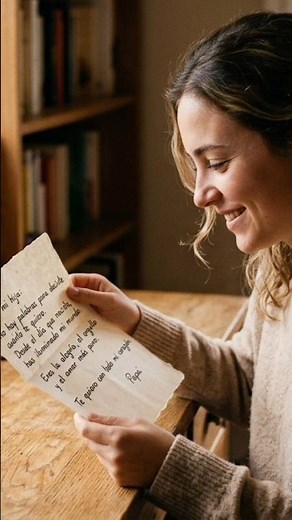 mi hija:
hay palabras para decirte
cuánto te quiero.
Desde el día que naciste,
has iluminado mi mundo.
Eres la alegría, el orgullo
y el amor más puro.
Te quiero con todo mi corazón.
Papá